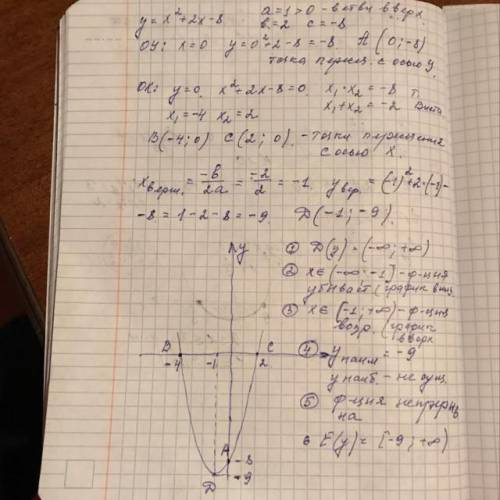 y=x²+2x-8 a=1>0 - ветви вверх.
b=2 c=-8
OY: x=0 y=0²+2-8=-8. A(0;-8)
точка перес. с осью y.
OX: y=0. x²+2x-8=0. x₁·x₂=-8 т.
x₁=-4 x₂=2 x₁+x₂=-2 Виета
B(-4;0) C(2;0). - точки пересечения
с осью X.
Xверш. = -b/2a = -2/2 = -1. yвер. = (-1)²+2·(-1)-
-8=1-2-8=-9. D(-1;-9).
y
① D(y)=(-∞;+∞)
② x∈(-∞;-1] - ф-ция
убывает (график вниз
③ x∈[-1;+∞) - ф-ция
возр. (график
вверх
B -4 -1 C 2
④ yнаим = -9
yнаиб. - не сущ.
⑤ ф-ция непрерыв
на
6 E(y)=[-9;+∞)
A -8
-9
D